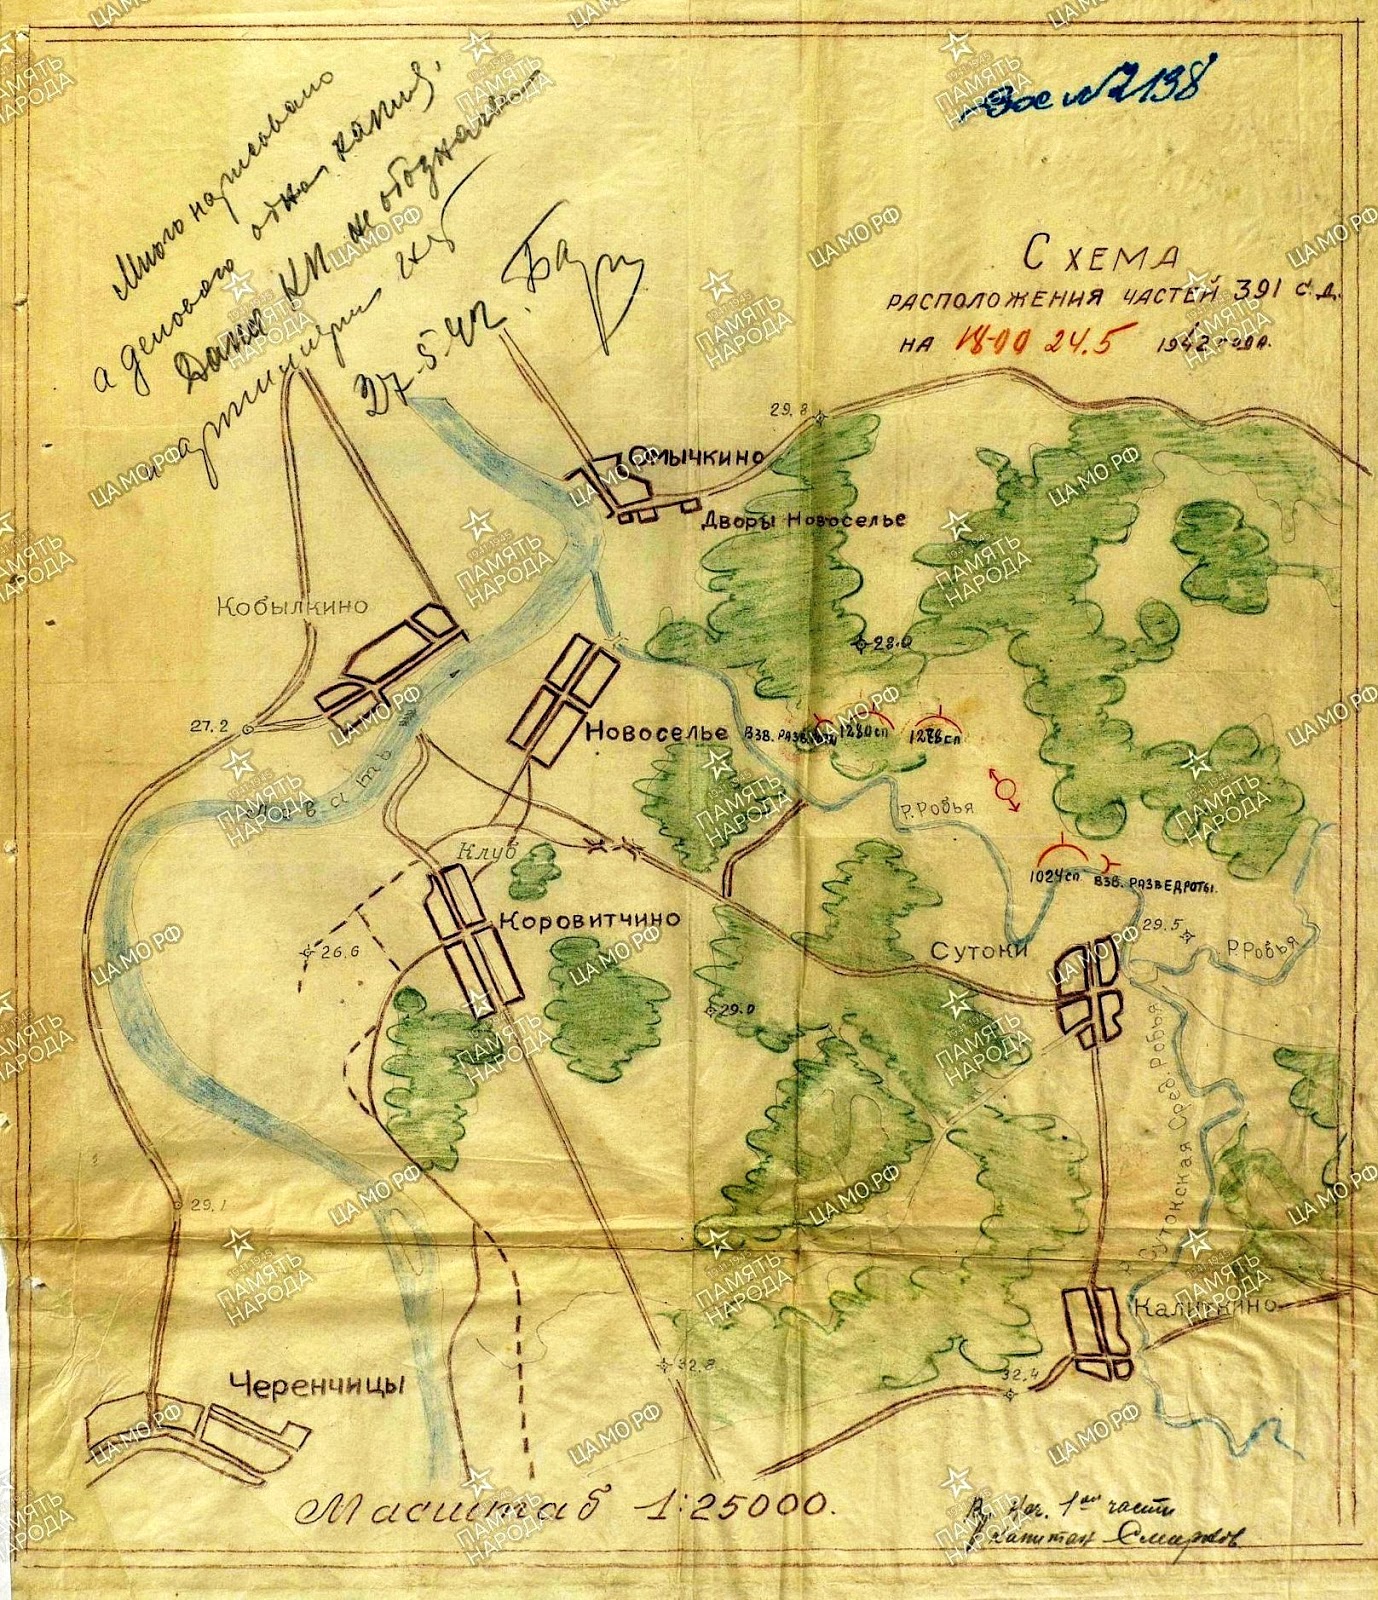 Много нарисовано
а делового одна капля.
Дома КП не обозначено
и артиллерии
27-5-42.
138
СХЕМА
РАСПОЛОЖЕНИЯ ЧАСТЕЙ 391 с.д.
НА 18-00 24.5 1942 года.
29.8
Омычкино
Дворы Новоселье
Кобылкино
28.0
27.2
Новоселье
ВЗВ. РАЗВЕДРОТЫ
1280сп
1278сп
Ловать
Р. Ровья
Клуб
1024сп
ВЗВ. РАЗВЕДРОТЫ.
Коровитчино
29.5
Сутоки
Р. Ровья
26.6
29.0
Сутокская Сред. Робья
29.1
Калиткино
32.8
32.4
Черенчицы
Масштаб 1:25000.
Нач. 1ой части
Капитан Смирнов
ПАМЯТЬ НАРОДА
1941-1945
ЦА МО РФ